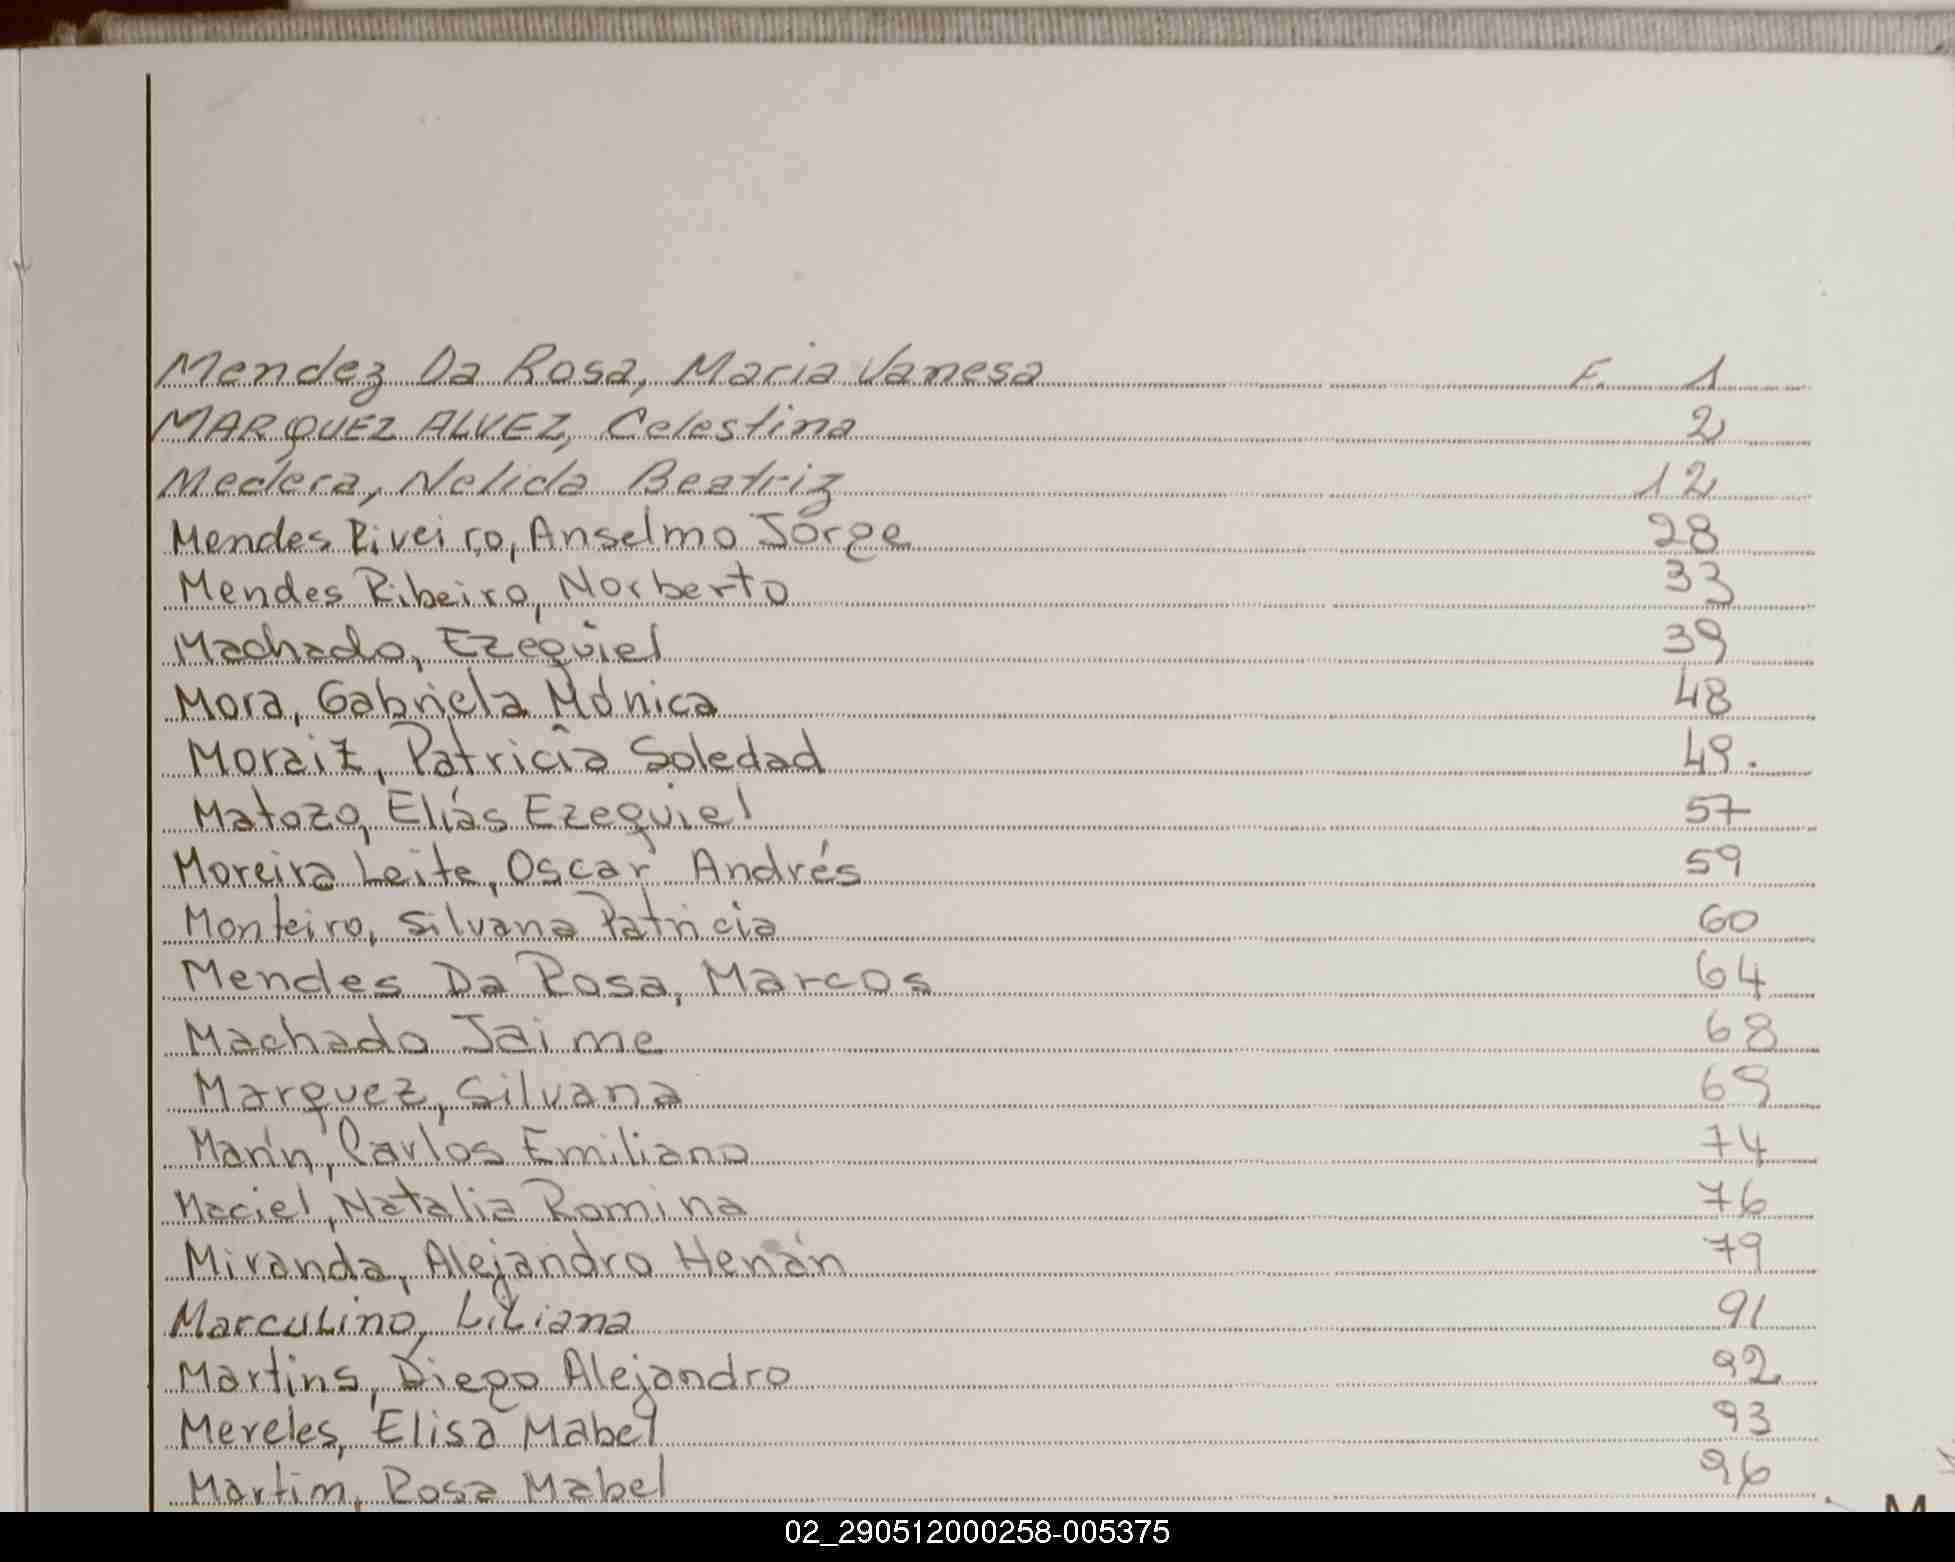 Mendez Da Rosa, Maria Vanesa F. 1
MARQUEZ ALVEZ, Celestina 2
Medera, Nelida Beatriz 12
Mendes Riveiro, Anselmo Jorge 28
Mendes Ribeiro, Norberto 33
Machado, Ezequiel 39
Mora, Gabriela Mónica 48
Moraiz, Patricia Soledad 49.
Matozo, Elías Ezequiel 57
Moreira Leite, Oscar Andrés 59
Monteiro, Silvana Patricia 60
Mendes Da Rosa, Marcos 64
Machado Jaime 68
Marquez, Silvana 69
Marín, Carlos Emiliano 74
Maciel, Natalia Romina 76
Miranda, Alejandro Henán 79
Marculino, Liliana 91
Martins, Diego Alejandro 92
Mereles, Elisa Mabel 93
Martim, Rosa Mabel 96
M
02_290512000258-005375